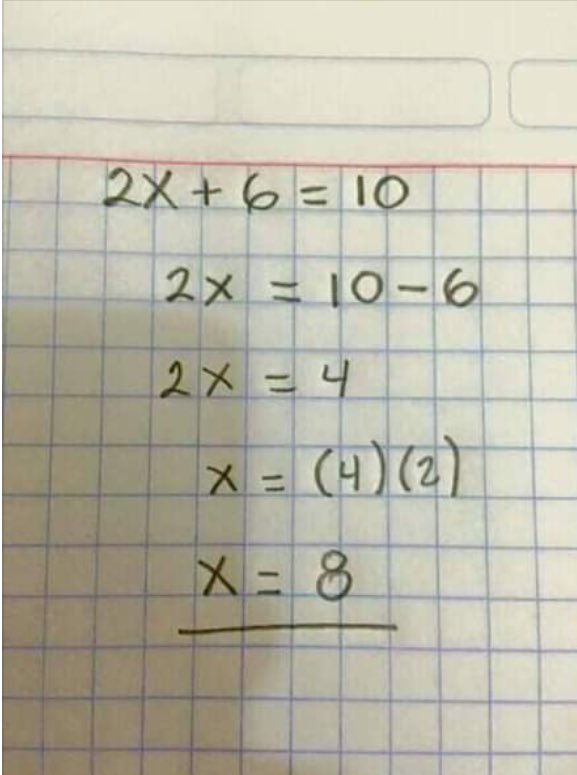 2x + 6 = 10
2x = 10 - 6
2x = 4
x = (4)(2)
x = 8